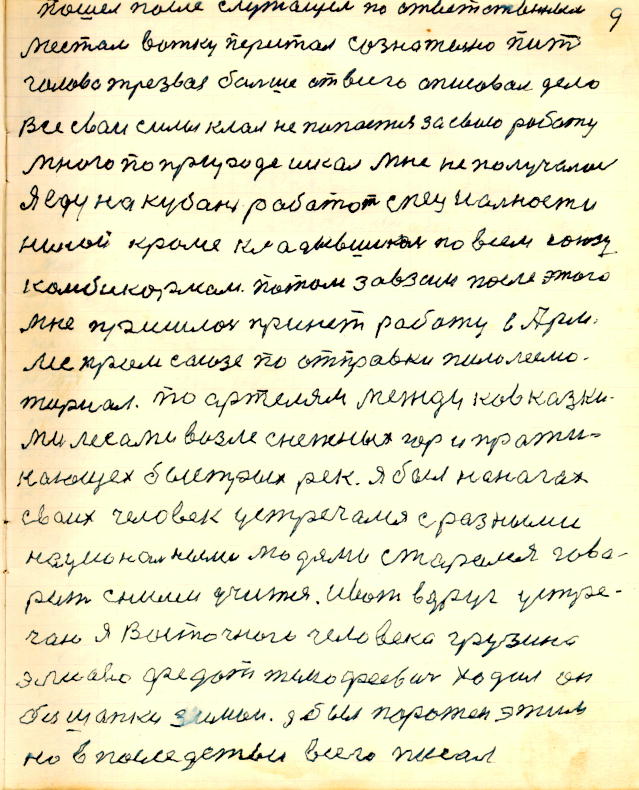 9
пошел после служащим по ответственным
местам вотку перитал сознателно пит
голова трезвая болше от всиго описовал дело
Все сваи силы клал не попастся за свою роботу
много по природе искал мне не получалос
Я еду на кубан роботот специалности
никой кроме кладывшиком по всем союзу
комбикормам. потом завзем после этого
мне пришлос принет роботу в Арм.
леспром саюзе по отправки пилолесмо-
териал. по артелям между ковказки-
ми лесами возле снежных гор и протц-
кающех быстрых рек. я был на ногах
своих человек устречался с разными
национал ными людями старался гова-
рит с ними учится. Ивот вдруг устре-
чаю я Восточного человека грузина
федот тимофеевич ходил он
без шапки зимои. я был поражен этим
но в последетвы всего писал